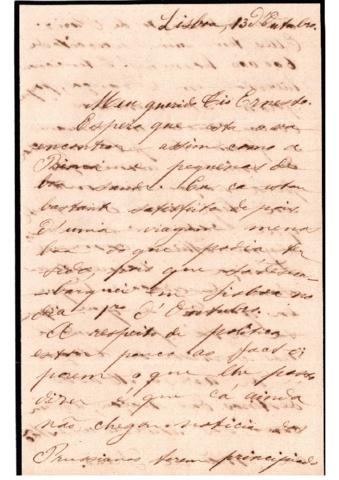 Lisboa, 13 d'Outubro.
Meu querido Tio Ernesto.
Espero que esta o vá
encontrar assim como a
e pequenas de
boa saude. Eu cá estou
bastante satisfeito
D'uma viagem
que podia ter
sido, pois que só desem-
barquei em Lisboa no
dia 1º d'Outubro.
A respeito de politica
estou pouco ao facto
porem o que lhe posso
dizer é que cá ainda
não chegou noticia dos
Prussianos terem principiado